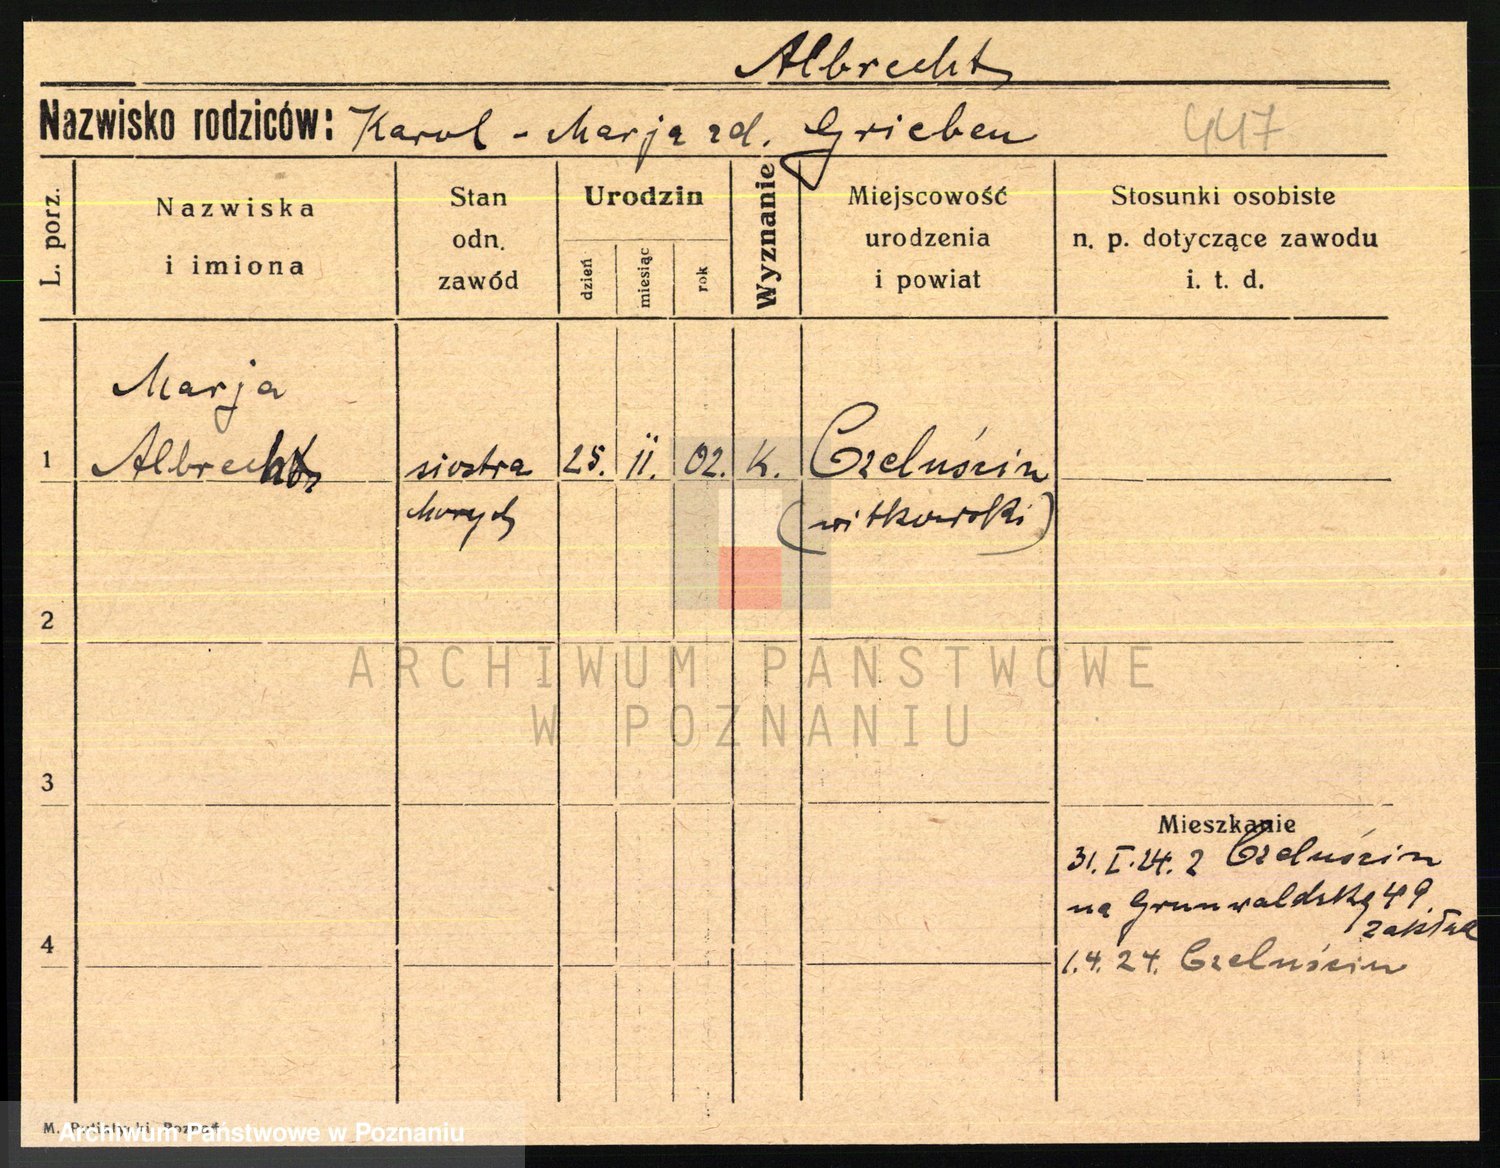 Albrecht
Nazwisko rodziców: Karol - Marja zd. Grieben
447
L. porz.
Nazwiska
i imiona
Stan
odn.
zawód
Urodzin
dzień
miesiąc
rok
Wyznanie
Miejscowość
urodzenia
i powiat
Stosunki osobiste
n. p. dotyczące zawodu
i. t. d.
Marja
1 Albrecht siostra 25. II. 02. K. Czeluścin
chorych (witkowski)
2
3
4
Mieszkanie
31. I. 24. z Czeluścin
na Grunwaldzką 49
zakład
1. 4. 24. Czeluścin
ARCHIWUM PAŃSTWOWE
W POZNANIU
M. Poznań
Archiwum Państwowe w Poznaniu